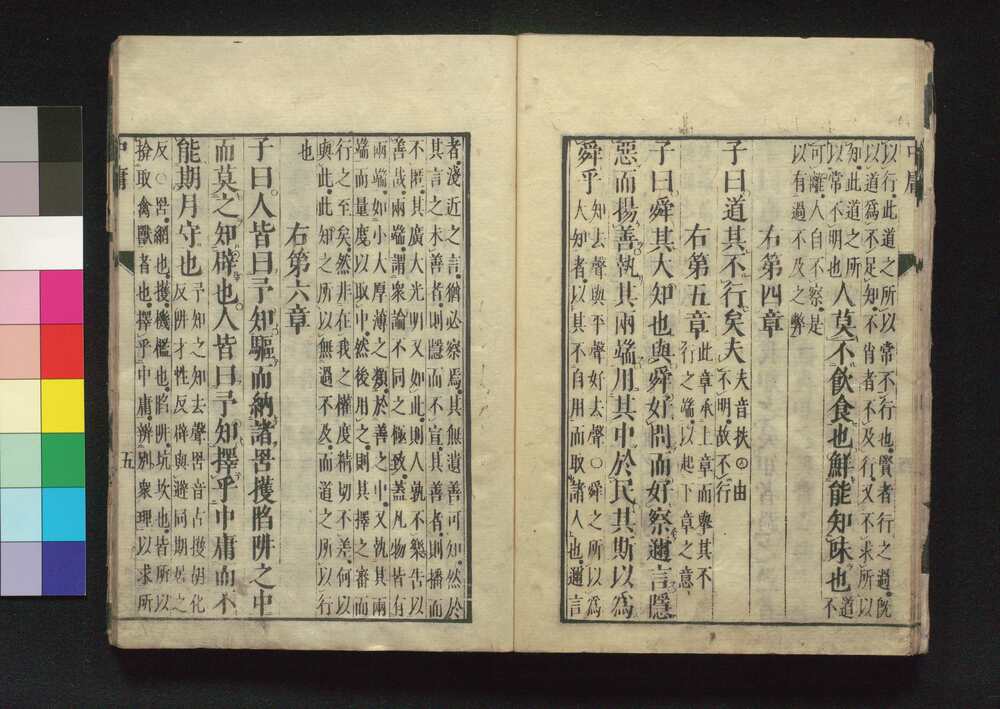 中庸
以行此道之所以常不行也賢者行之過既
以道爲不足知不肖者不及行又不求所以
知此道之所
以常不明也
人莫不飮食也鮮能知味也
道
不
可離人自不察是
以有過不及之弊
右第四章
子曰道其不行矣夫
夫音扶○由
不明故不行
右第五章
此章承上章而舉其不
行之端以起下章之意
子曰舜其大知也與舜好問而好察邇言隱
惡而揚善執其兩端用其中於民其斯以爲
舜乎
知去聲與平聲好去聲○舜之所以爲
大知者以其不自用而取諸人也邇言
者淺近之言猶必察焉其無遺善可知然於
其言之未善者則隱而不宣其善者則播而
不匿其廣大光明又如此則人孰不樂告以
善哉兩端謂衆論不同之極致蓋凡物皆有
兩端如小大厚薄之類於善之中又執其兩
端而量度以取中然後用之則其擇之審而
行之至矣然非在我之權度精切不差何以
與此此知之所以無過不及而道之所以行
也
右第六章
子曰人皆曰予知驅而納諸罟擭陷阱之中
而莫之知辟也人皆曰予知擇乎中庸而不
能期月守也
予知之知去聲罟音古擭胡化
反阱才性反辟與避同期居之
反○罟網也擭機檻也陷阱坑坎也皆所以
揜取禽獸者也擇乎中庸辨別衆理以求所
中庸
五